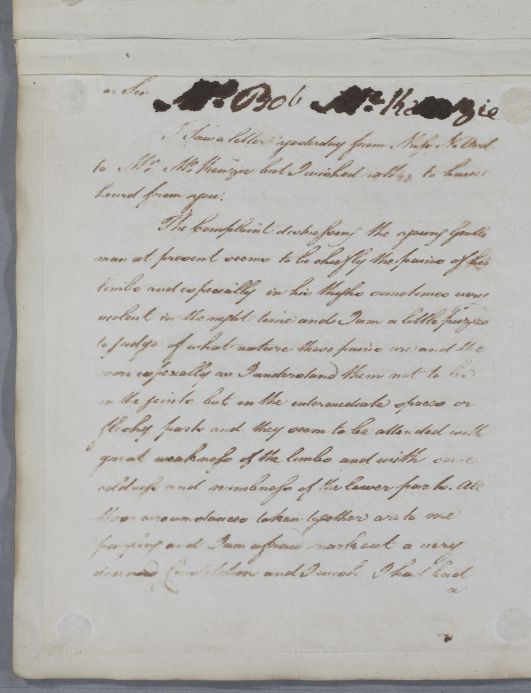 Sir Mr. Bob Mr. Kenzie
I Saw a letter yesterday from Miss
to Mr. McKenzie but I wished rather to have
heard from you.
The Complaint distressing the young Gentle
man at present seems to be chiefly the pains of his
limbs and especially in his thighs sometimes very
violent in the night time and I am a little puzzled
to judge of what nature these pains are and the
more especially as I understand them not to be
in the joints but in the intermediate spaces or
fleshy parts and they seem to be attended with
great weakness of the limbs and with some
coldness and numbness of the lower parts. All
these circumstances taken together are to me
puzzling and I am afraid mark out a very
and I wish I had had
a